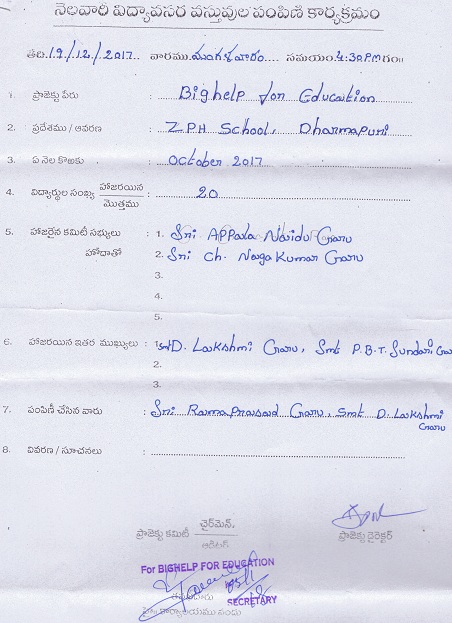 నెలవారి విద్యావసర వస్తువుల పంపిణి కార్యక్రమం
తేది.19/12/2017.. వారము.మంగళవారం.... సమయం.4:30PMగం॥
1. ప్రాజెక్టు పేరు : Bighelp for Education
2. ప్రదేశము / ఆవరణ : Z.P.H School, Dharmapuri
3. ఏ నెల కొఱకు : October 2017
4. విద్యార్థుల సంఖ్య హాజరయిన / మొత్తము : 20
5. హాజరైన కమిటీ సభ్యులు : 1. Sri APPala Naidu Garu
హోదాతో 2. Sri Ch. Naga Kumar Garu
3.
4.
5.
6. హాజరయిన ఇతర ముఖ్యులు : 1. Smt D. Lakshmi Garu, Smt P.B.T. Sundari Garu
2.
3.
7. పంపిణీ చేసిన వారు : Sri Rama Prasad Garu, Smt D. Lakshmi
Garu
8. వివరణ / సూచనలు :
ప్రాజెక్టు కమిటీ చైర్‌మెన్.
ప్రాజెక్టు డైరెక్టర్
For BIGHELP FOR EDUCATION
SECRETARY